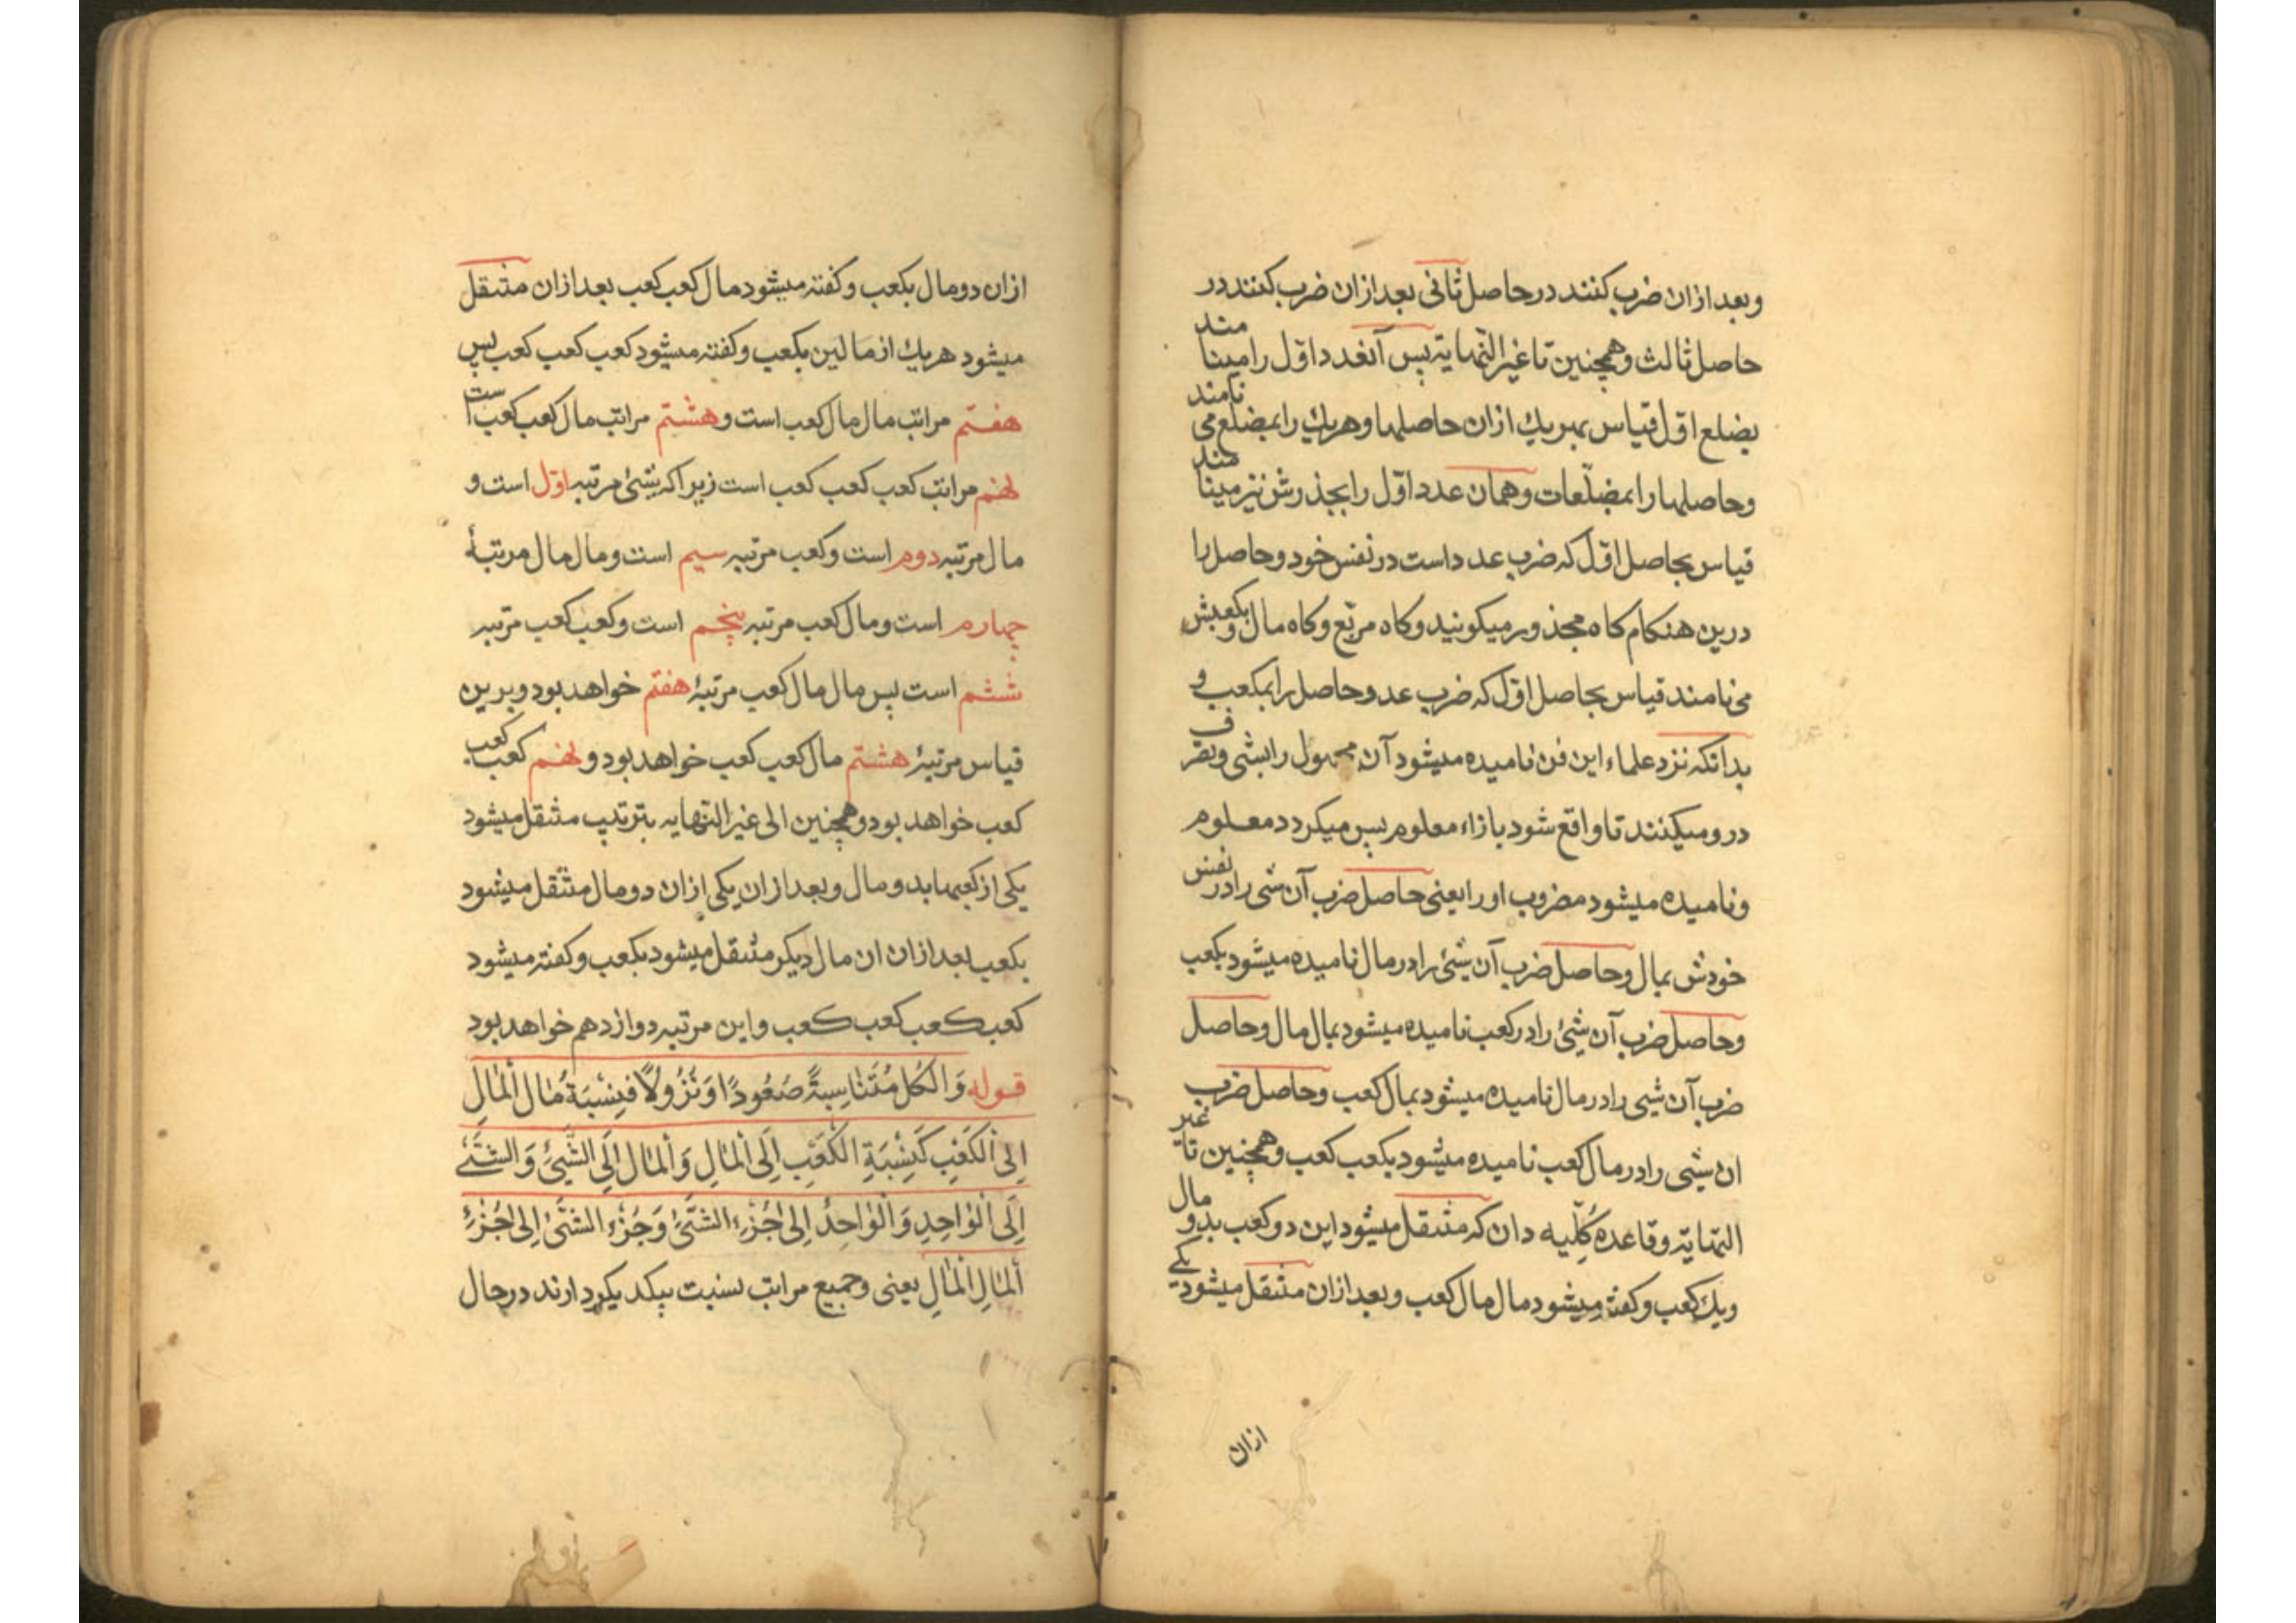 وبعد ازان ضرب کنند در حاصل ثانی بعد ازان ضرب کنند در
حاصل ثالث وهمچنین تا غیر النهایته پس آنعدد اوّل را مینامند
بضلع اوّل قیاس بهریك ازان حاصلها وهریك را بمضلع می نامند
وحاصلها را بمضلّعات وهمان عدد اوّل را بجذرش نیز مینامند
قیاس بحاصل اوّل که ضرب عدد است در نفس خود وحاصل را
درین هنکام کاه مجذور میکویند وکاه مربّع وکاه مال وبکعبش
می نامند قیاس بحاصل اوّل که ضرب عدد وحاصل را بمکعب و
بدانکه نزد علماء این فن نامیده میشود آن مجهول را بشی وتصرف
درو میکنند تا واقع شود بازاء معلوم پس میکردد معلوم
ونامیده میشود مضروب او را یعنی حاصل ضرب آن شی را در نفس
خودش بمال وحاصل ضرب آن شیئ را در مال نامیده میشود بکعب
وحاصل ضرب آن شیئ را در کعب نامیده میشود بمال مال وحاصل
ضرب آن شیی را در مال نامیده میشود بمال کعب وحاصل ضرب
ان شیی را در مال کعب نامیده میشود بکعب کعب وهمچنین تا غیر
النهایته وقاعده کلّیه دان که متنقل میشود این دو کعب بدو مال
ویك کعب وکفته میشود مال مال کعب وبعد ازان متنقل میشود یکی
ازان
ازان دو مال بکعب وکفته میشود مال کعب کعب بعد ازان متنقل
میشود هریك از مالین بکعب وکفته میشود کعب کعب کعب پس
هفتم مراتب مال مال کعب است وهشتم مراتب مال کعب کعب است
نهم مراتب کعب کعب کعب است زیرا که شیئ مرتبه اوّل است و
مال مرتبه دوم است وکعب مرتبه سیم است ومال مال مرتبۀ
چهارم است ومال کعب مرتبه پنجم است وکعب کعب مرتبه
ششم است پس مال مال کعب مرتبۀ هفتم خواهد بود وبرین
قیاس مرتبۀ هشتم مال کعب کعب خواهد بود ونهم کعب کعب
کعب خواهد بود وهمچنین الی غیر النهایه بترتیب متنقل میشود
یکی از کعبها بدو مال وبعد ازان یکی ازان دو مال متنقل میشود
بکعب بعد ازان ان مال دیکر متنقل میشود بکعب وکفته میشود
کعب کعب کعب کعب واین مرتبه دوازدهم خواهد بود
قوله وَالْکُل مُتَنَاسِبةً صُعُودًا وَنُزُولًا فَنِسْبَةُ مٰال اَلْمٰالِ
اِلیَ اْلکَعْبِ کَنِسْبَةِ الکَعْبِ اِلَی اْلمٰالِ وَاْلمٰال اِلَی الشَّیئِ وَالشَّئے
اِلَی الْوٰاحِدِ وَالْوٰاحِدُ اِلیٰ جُزْءِ الشَّئِ وَجُزْءِ الشَّئ اِلیٰ جُزْءِ
اَلْمٰالِ الْمٰالِ یعنی وجمیع مراتب نسبت بیکد یکر دارند در حال